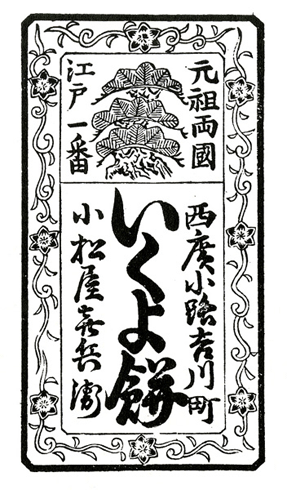 元祖両國
江戸一番
西廣小路吉川町
いくよ餅
小松屋喜兵衞